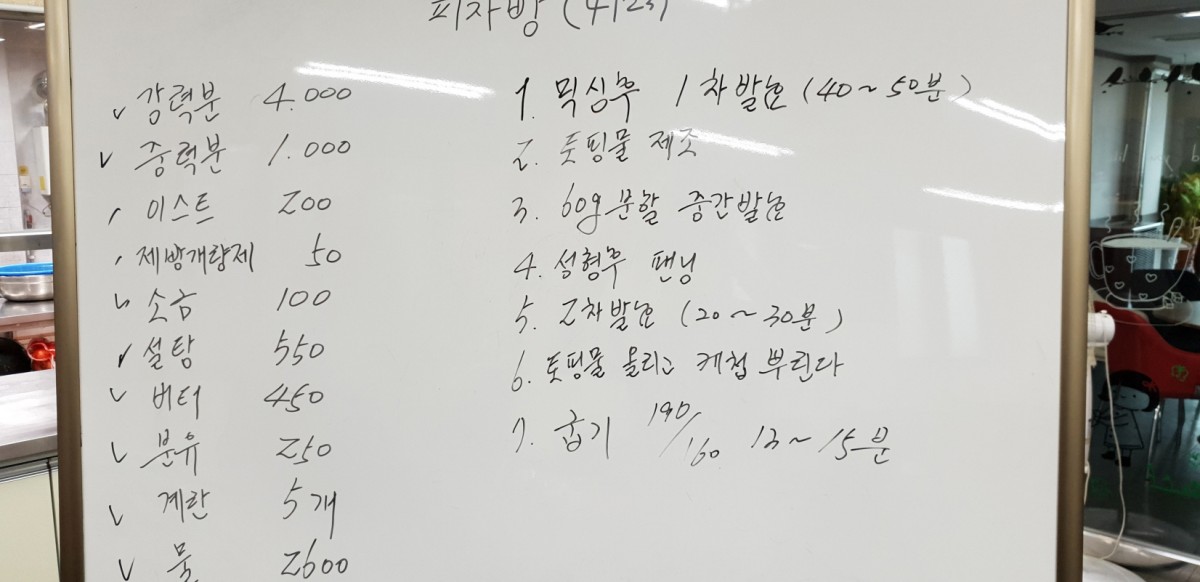 피자빵 (4/23)
강력분 4.000
중력분 1.000
이스트 200
제빵개량제 50
소금 100
설탕 550
버터 450
분유 250
계란 5개
물 2600
1. 믹싱후 1차발효 (40~50분)
2. 토핑물 제조
3. 60g분할 중간발효
4. 성형후 팬닝
5. 2차발효 (20~30분)
6. 토핑물 올리고 케첩 뿌린다
7. 굽기 190/160 13~15분